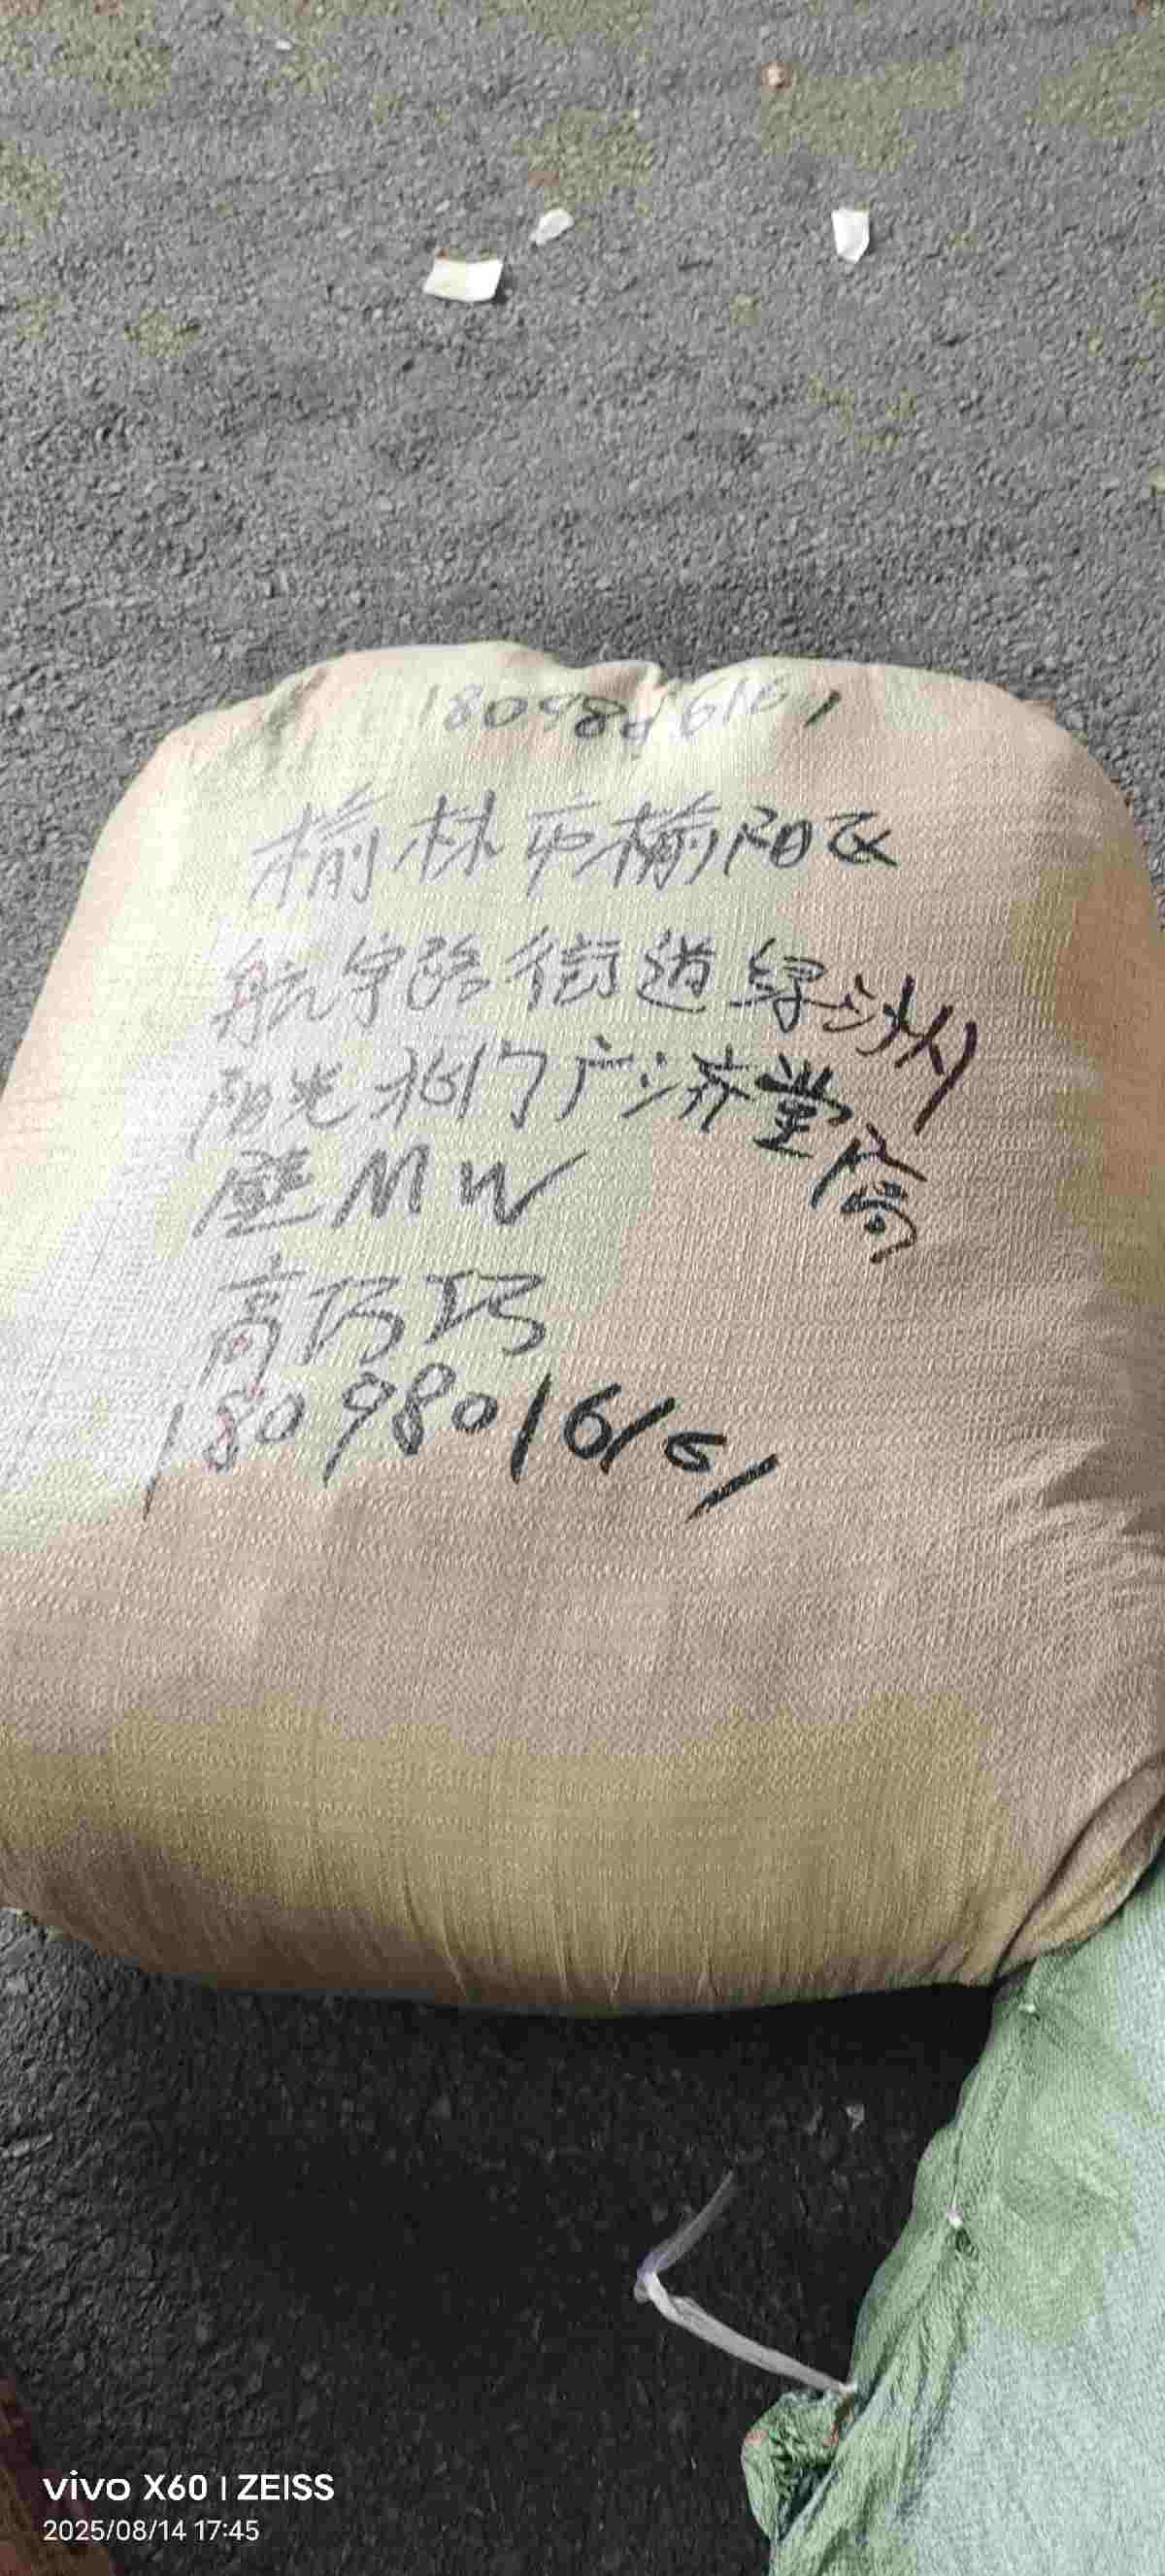 18098016161
榆林市榆阳区
航宇路街道绿洲
阳光北门广济堂
隔壁MW
高巧巧
18098016161
vivo X60 | ZEISS
2025/08/14 17:45